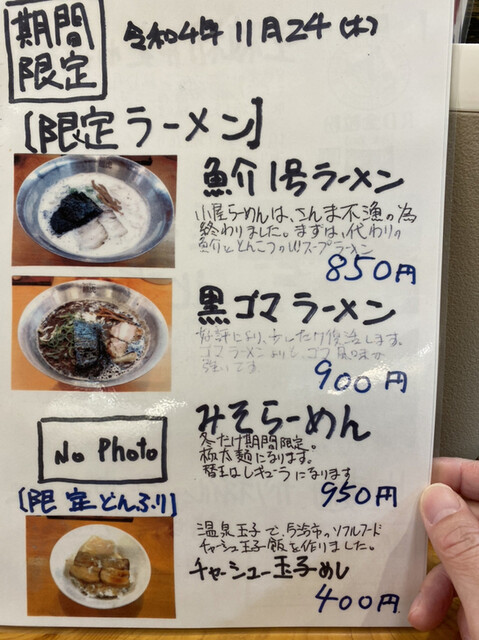 期間
限定
令和4年11月24(木)
[限定ラーメン]
魚介1号ラーメン
小屋らーめんは、さんま不漁の為
終わりました。まずは、代わりの
魚介ととんこつのWスープラーメン
850円
黒ゴマラーメン
好評により、あしたり復活します。
ゴマラーメンよりも、ゴマ風味が
強いです
900円
みそらーめん
No Photo
冬だけ期間限定。
極太麺になります。
替玉はレギュラーになります
950円
[限定どんぶり]
温泉玉子で、今治市のソウルフード
チャーシュー玉子飯を作りました。
チャーシュー玉子めし
400円